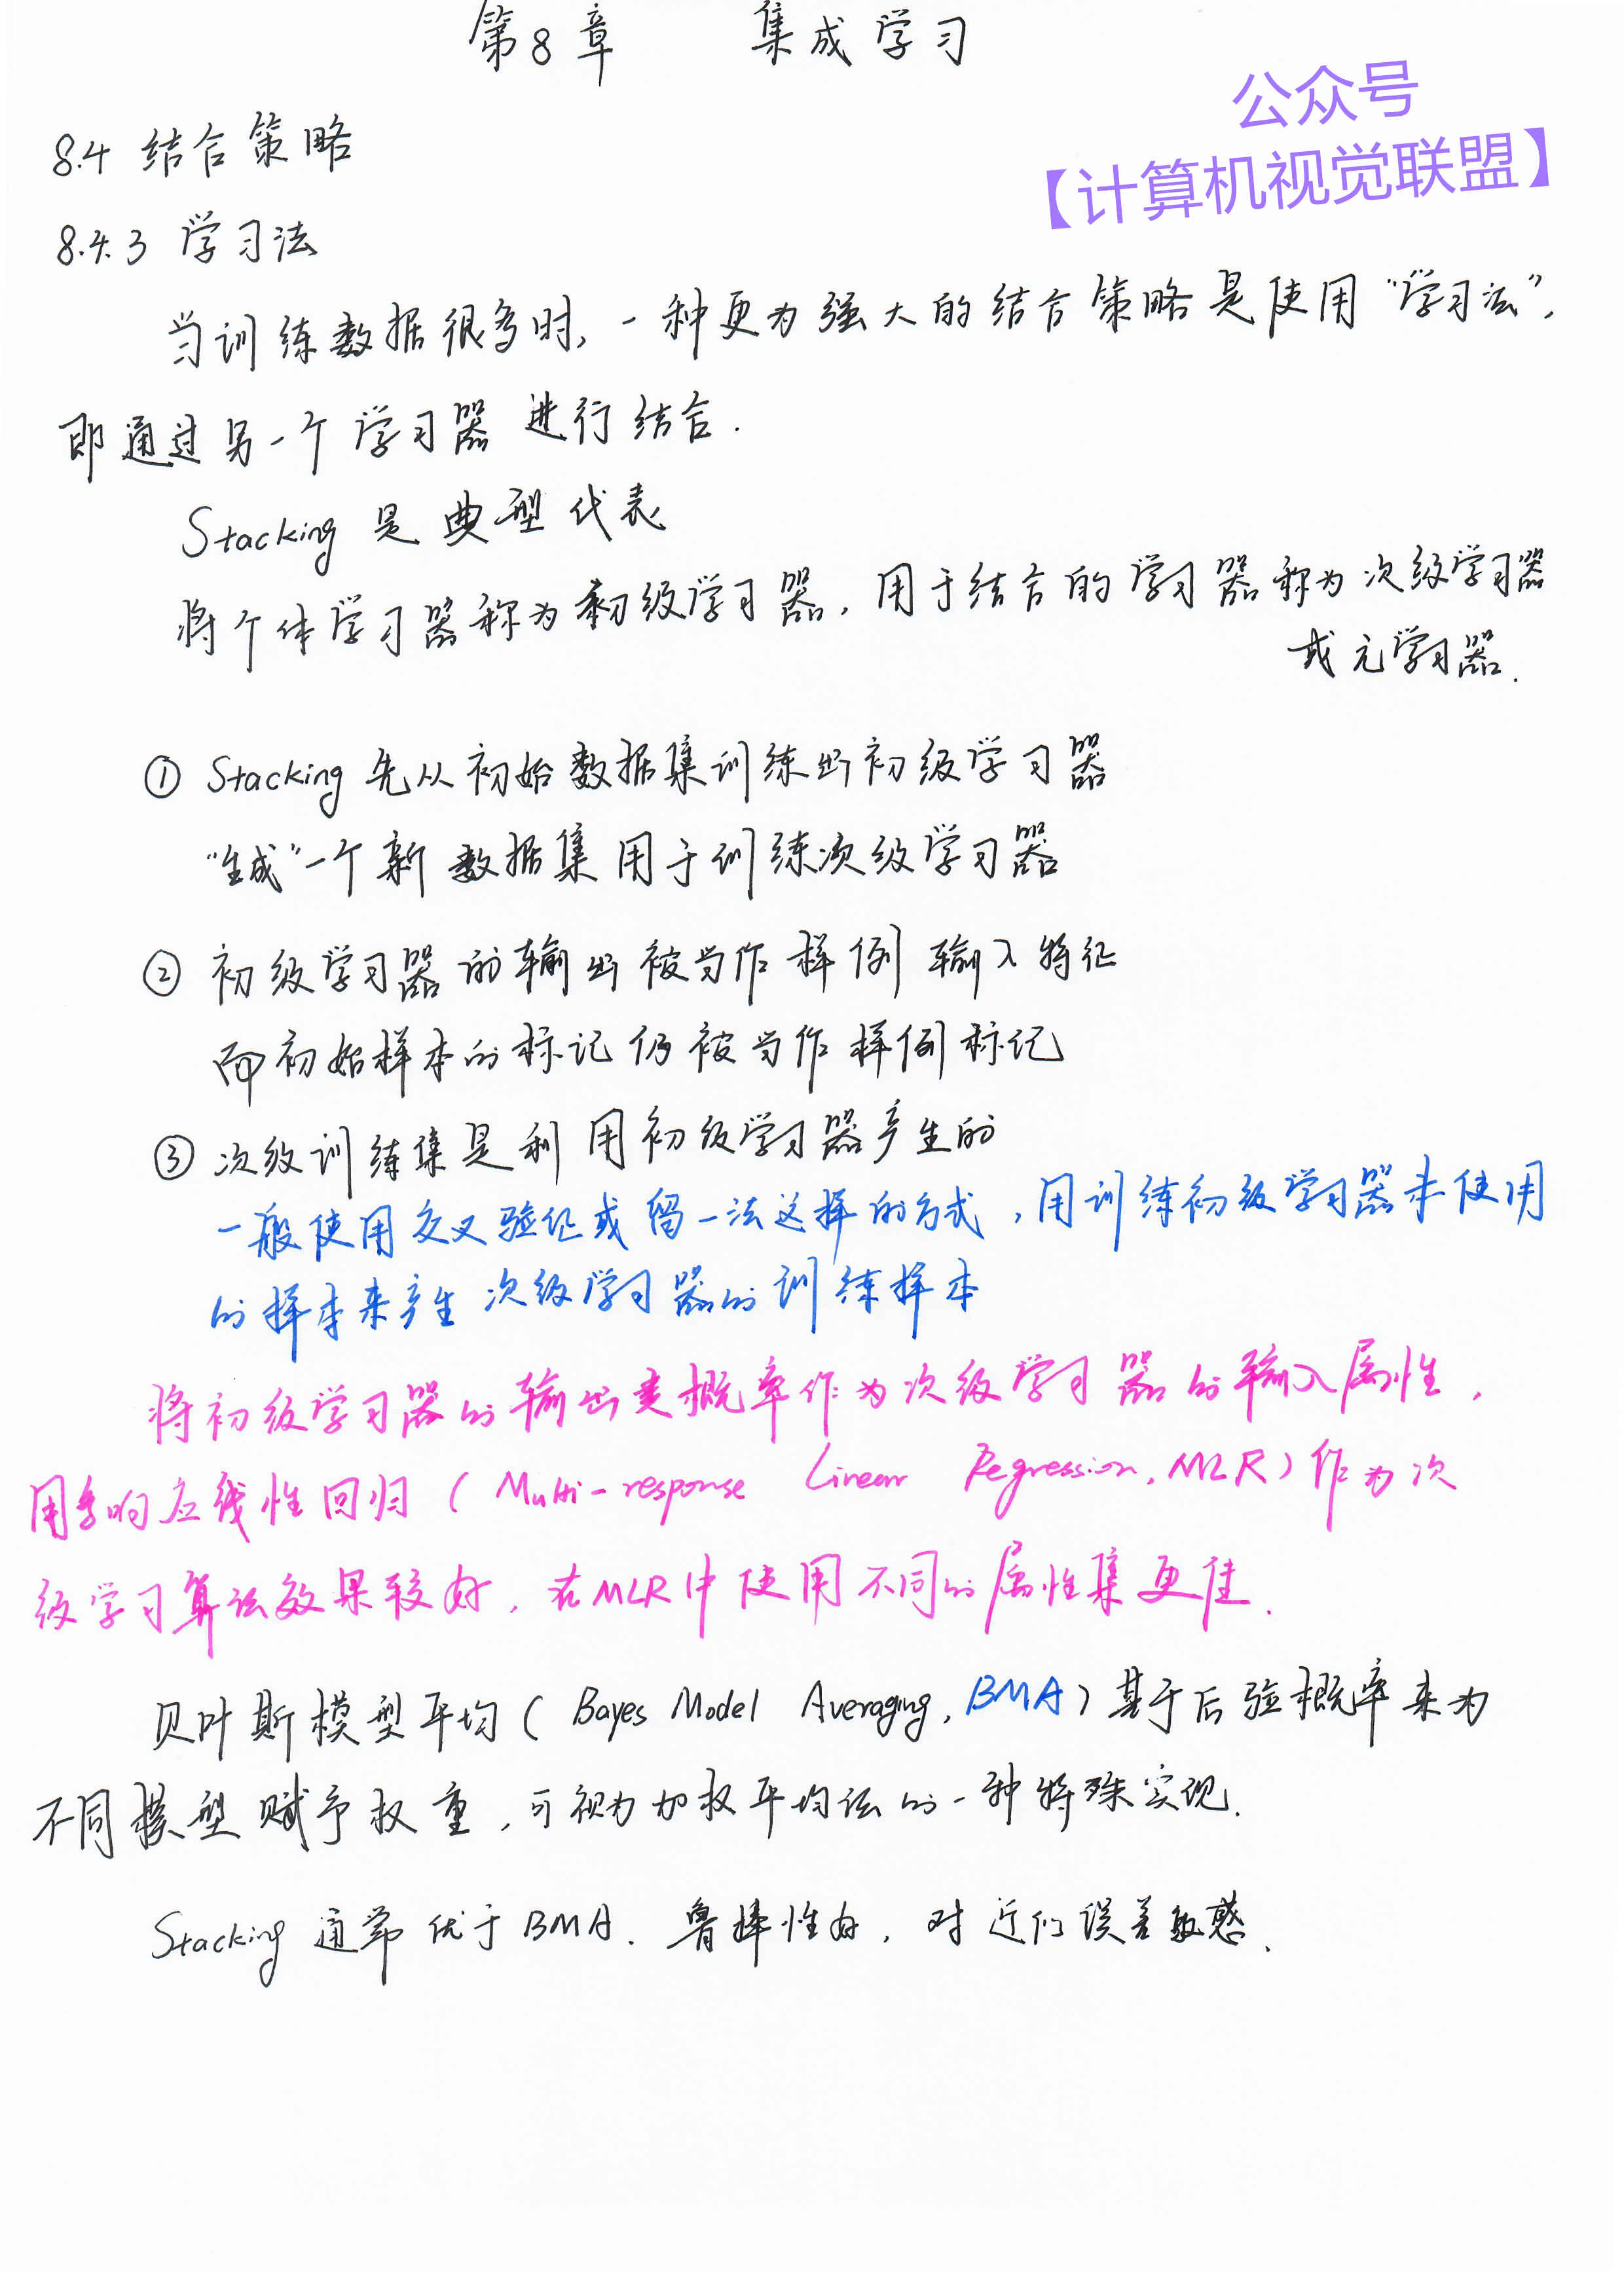 第8章 集成学习
公众号
【计算机视觉联盟】
8.4 结合策略
8.4.3 学习法
当训练数据很多时，一种更为强大的结合策略是使用“学习法”，
即通过另一个学习器进行结合.
Stacking 是典型代表
将个体学习器称为初级学习器，用于结合的学习器称为次级学习器
或元学习器.
① Stacking 先从初始数据集训练出初级学习器
“生成”一个新数据集用于训练次级学习器
② 初级学习器的输出被当作样例输入特征
而初始样本的标记仍被当作样例标记
③ 次级训练集是利用初级学习器产生的
一般使用交叉验证或留一法这样的方式，用训练初级学习器未使用
的样本来产生次级学习器的训练样本
将初级学习器的输出类概率作为次级学习器的输入属性，
用多响应线性回归（Multi-response Linear Regression, MLR）作为次
级学习算法效果较好，在MLR中使用不同的属性集更佳.
贝叶斯模型平均（Bayes Model Averaging, BMA）基于后验概率来为
不同模型赋予权重，可视为加权平均法的一种特殊实现.
Stacking 通常优于BMA. 鲁棒性好，对近似误差敏感.